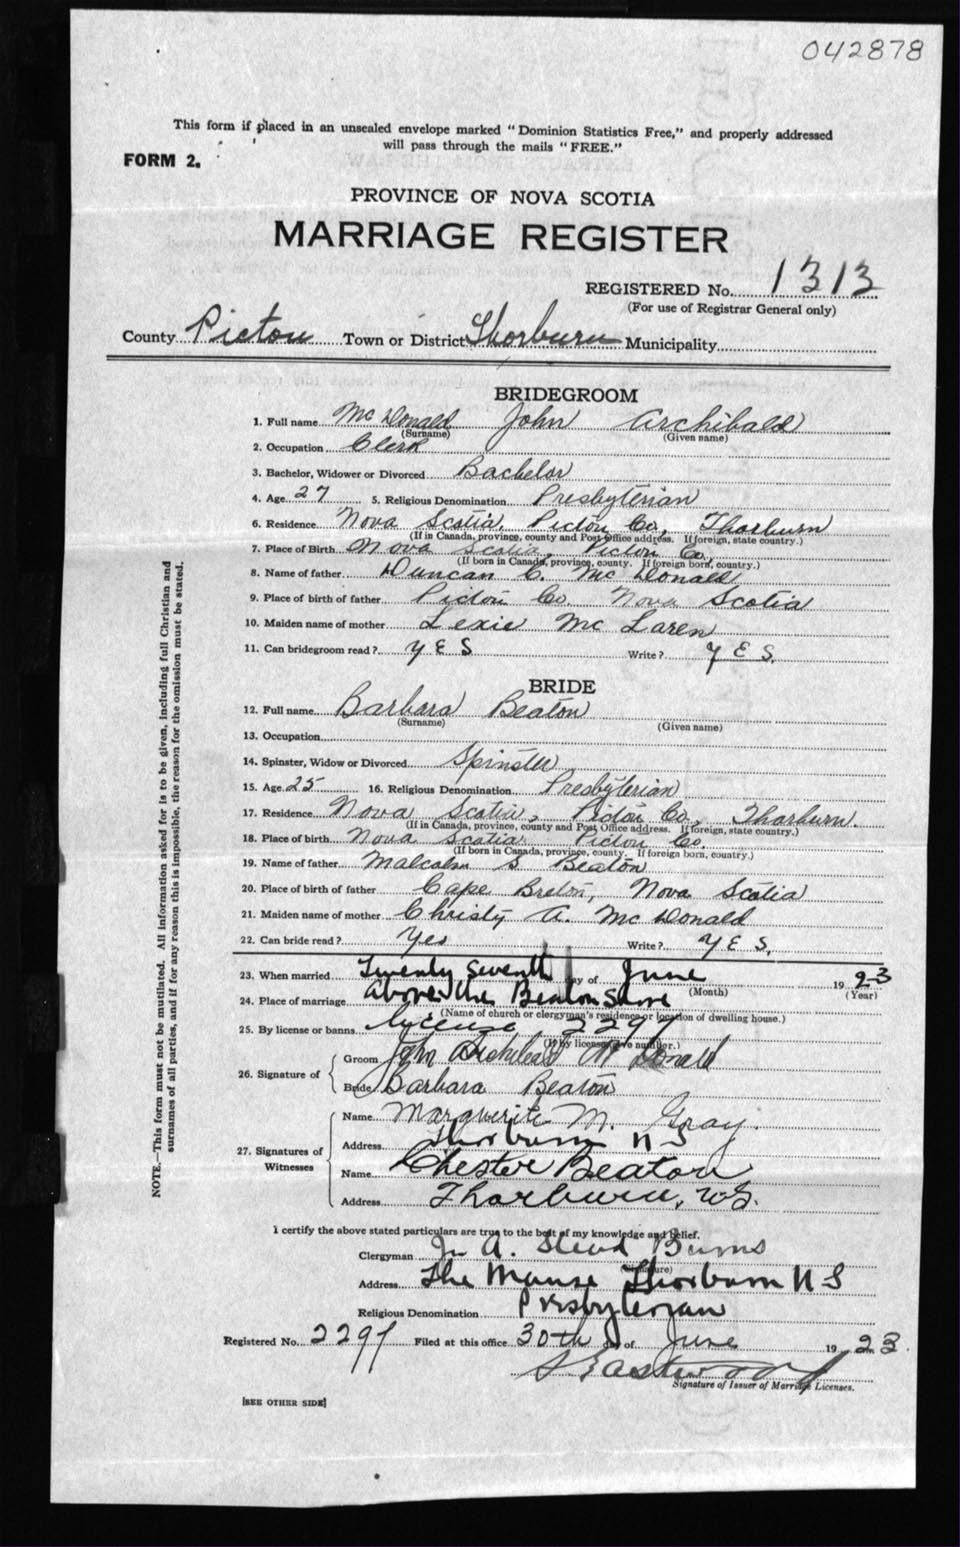 042878
This form if placed in an unsealed envelope marked "Dominion Statistics Free," and properly addressed
will pass through the mails "FREE."
FORM 2.
PROVINCE OF NOVA SCOTIA
MARRIAGE REGISTER
REGISTERED No. 1313
(For use of Registrar General only)
County Pictou Town or District Thorburn Municipality
BRIDEGROOM
1. Full name McDonald John Archibald
(Surname) (Given name)
2. Occupation Clerk
3. Bachelor, Widower or Divorced Bachelor
4. Age 27 5. Religious Denomination Presbyterian
6. Residence Nova Scotia, Pictou Co, Thorburn
(If in Canada, province, county and Post Office address. If foreign, state country.)
7. Place of Birth Nova Scotia, Pictou Co,
(If born in Canada, province, county. If foreign born, country.)
8. Name of father Duncan C. McDonald
9. Place of birth of father Pictou Co Nova Scotia
10. Maiden name of mother Lexie McLaren
11. Can bridegroom read? YES Write? YES.
BRIDE
12. Full name Barbara Beaton
(Surname) (Given name)
13. Occupation
14. Spinster, Widow or Divorced Spinster
15. Age 25 16. Religious Denomination Presbyterian
17. Residence Nova Scotia, Pictou Co, Thorburn.
(If in Canada, province, county and Post Office address. If foreign, state country.)
18. Place of birth Nova Scotia Pictou Co.
(If born in Canada, province, county. If foreign born, country.)
19. Name of father Malcolm S Beaton
20. Place of birth of father Cape Breton, Nova Scotia
21. Maiden name of mother Christy A. McDonald
22. Can bride read? Yes Write? YES,
23. When married Twenty Seventh day of June 1923
(Month) (Year)
24. Place of marriage above the Beaton Store
(Name of church or clergyman's residence or location of dwelling house.)
25. By license or banns License, 2297
(If by license give number.)
26. Signature of
Groom John Archibald McDonald
Bride Barbara Beaton
27. Signatures of Witnesses
Name Marguerite M. Gray.
Address Thorburn N S
Name Chester Beaton
Address Thorburn, N.S.
I certify the above stated particulars are true to the best of my knowledge and belief.
Clergyman A. Burns
(Signature)
Address The Manse Thorburn N S
Religious Denomination Presbyterian
Registered No. 2297 Filed at this office 30th day of June 1923.
Eastwood
Signature of Issuer of Marriage Licenses.
[SEE OTHER SIDE]
NOTE.—This form must not be mutilated. All information asked for is to be given, including full Christian and
surnames of all parties, and if for any reason this is impossible, the reason for the omission must be stated.